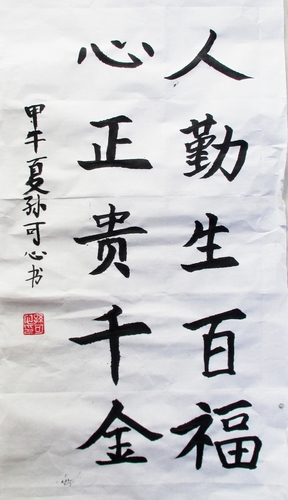 人勤生百福
心正贵千金
甲午夏孙可心书